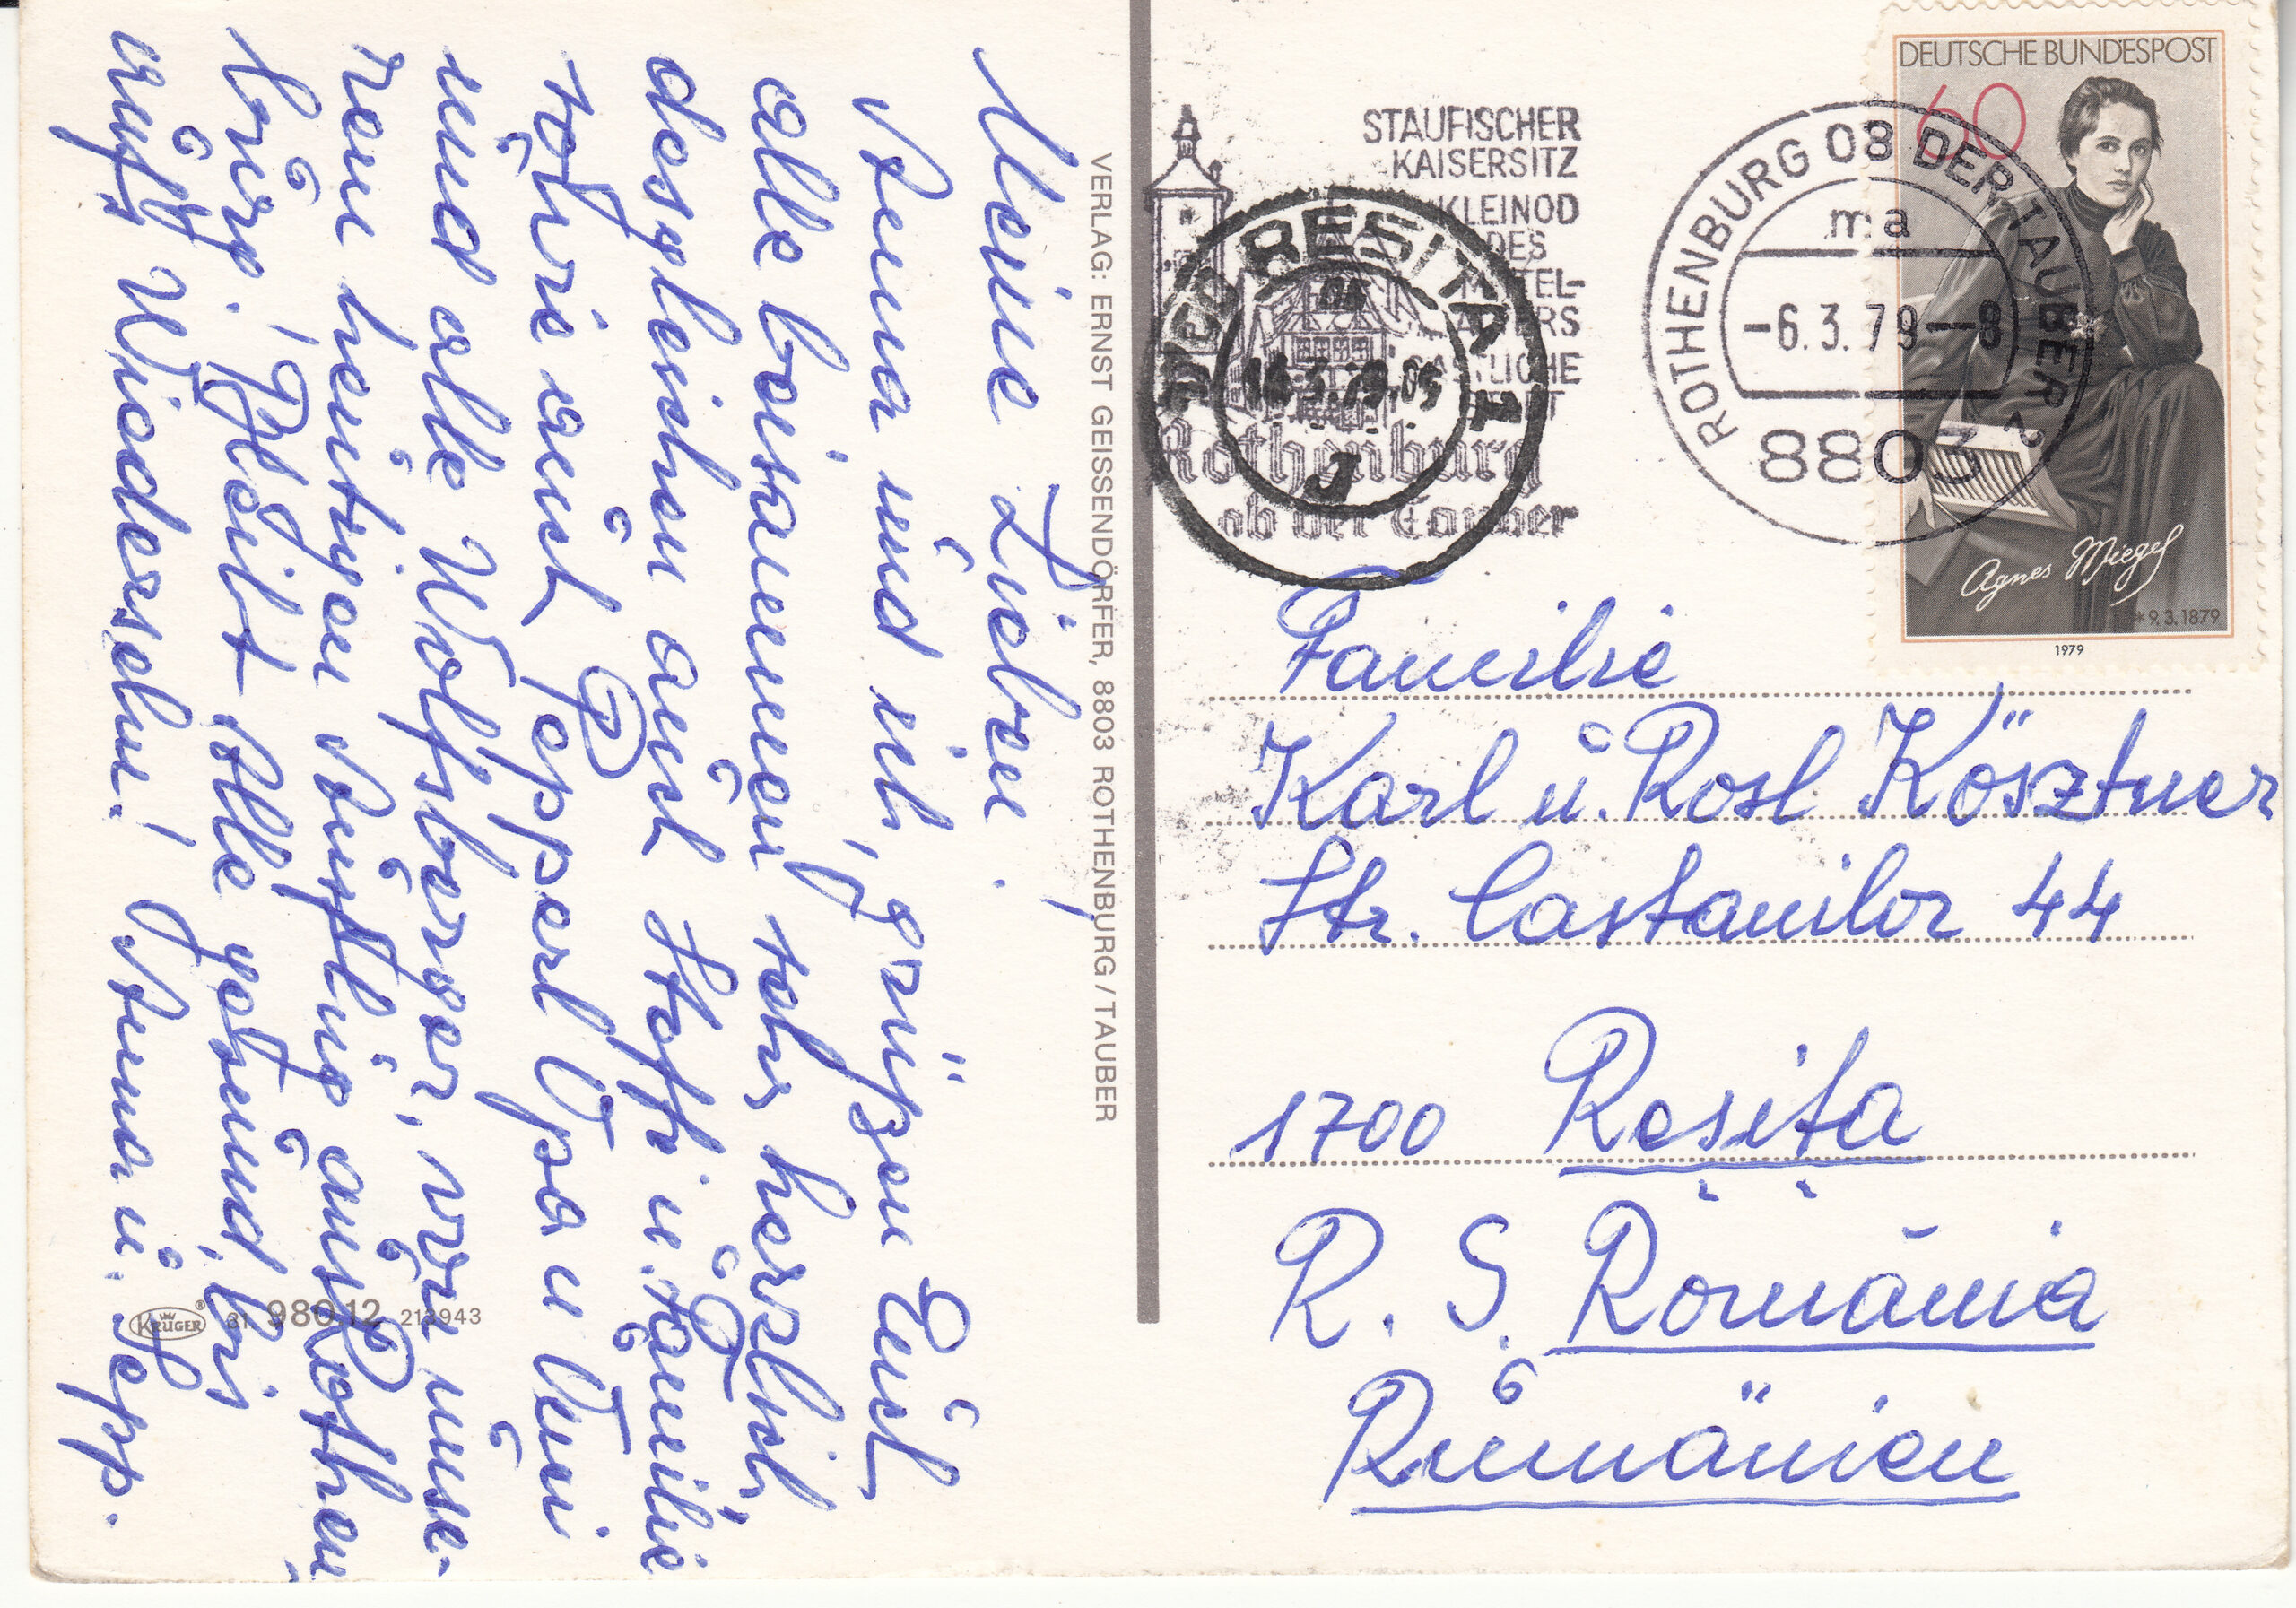 Meine Lieben!
Anna und ich, grüßen Euch
alle beisammen sehr herzlich,
desgleichen auch Steffi u. Familie
sowie auch Pepperl Opa u Omi
und alle Wolfsberger, von unse-
rem heutigen Ausflug aus Rothen
burg. Bleibt Alle gesund, bis
aufs Wiedersehn! Anna u. Sepp.
VERLAG: ERNST GEISSENDÖRFER, 8803 ROTHENBURG / TAUBER
KRÜGER ® 98012 213943
STAUFISCHER
KAISERSITZ
KLEINOD
DES
Rothenburg
ob der Tauber
RESITA 1
ROTHENBURG 08 DER TAUBER 2
ma
-6.3.79--8
8803
DEUTSCHE BUNDESPOST
60
Agnes Miegel
* 9.3.1879
1979
Familie
Karl u. Rosl Kösztner
Str. Castanilor 44
1700 Resita
R. S. România
Rumänien